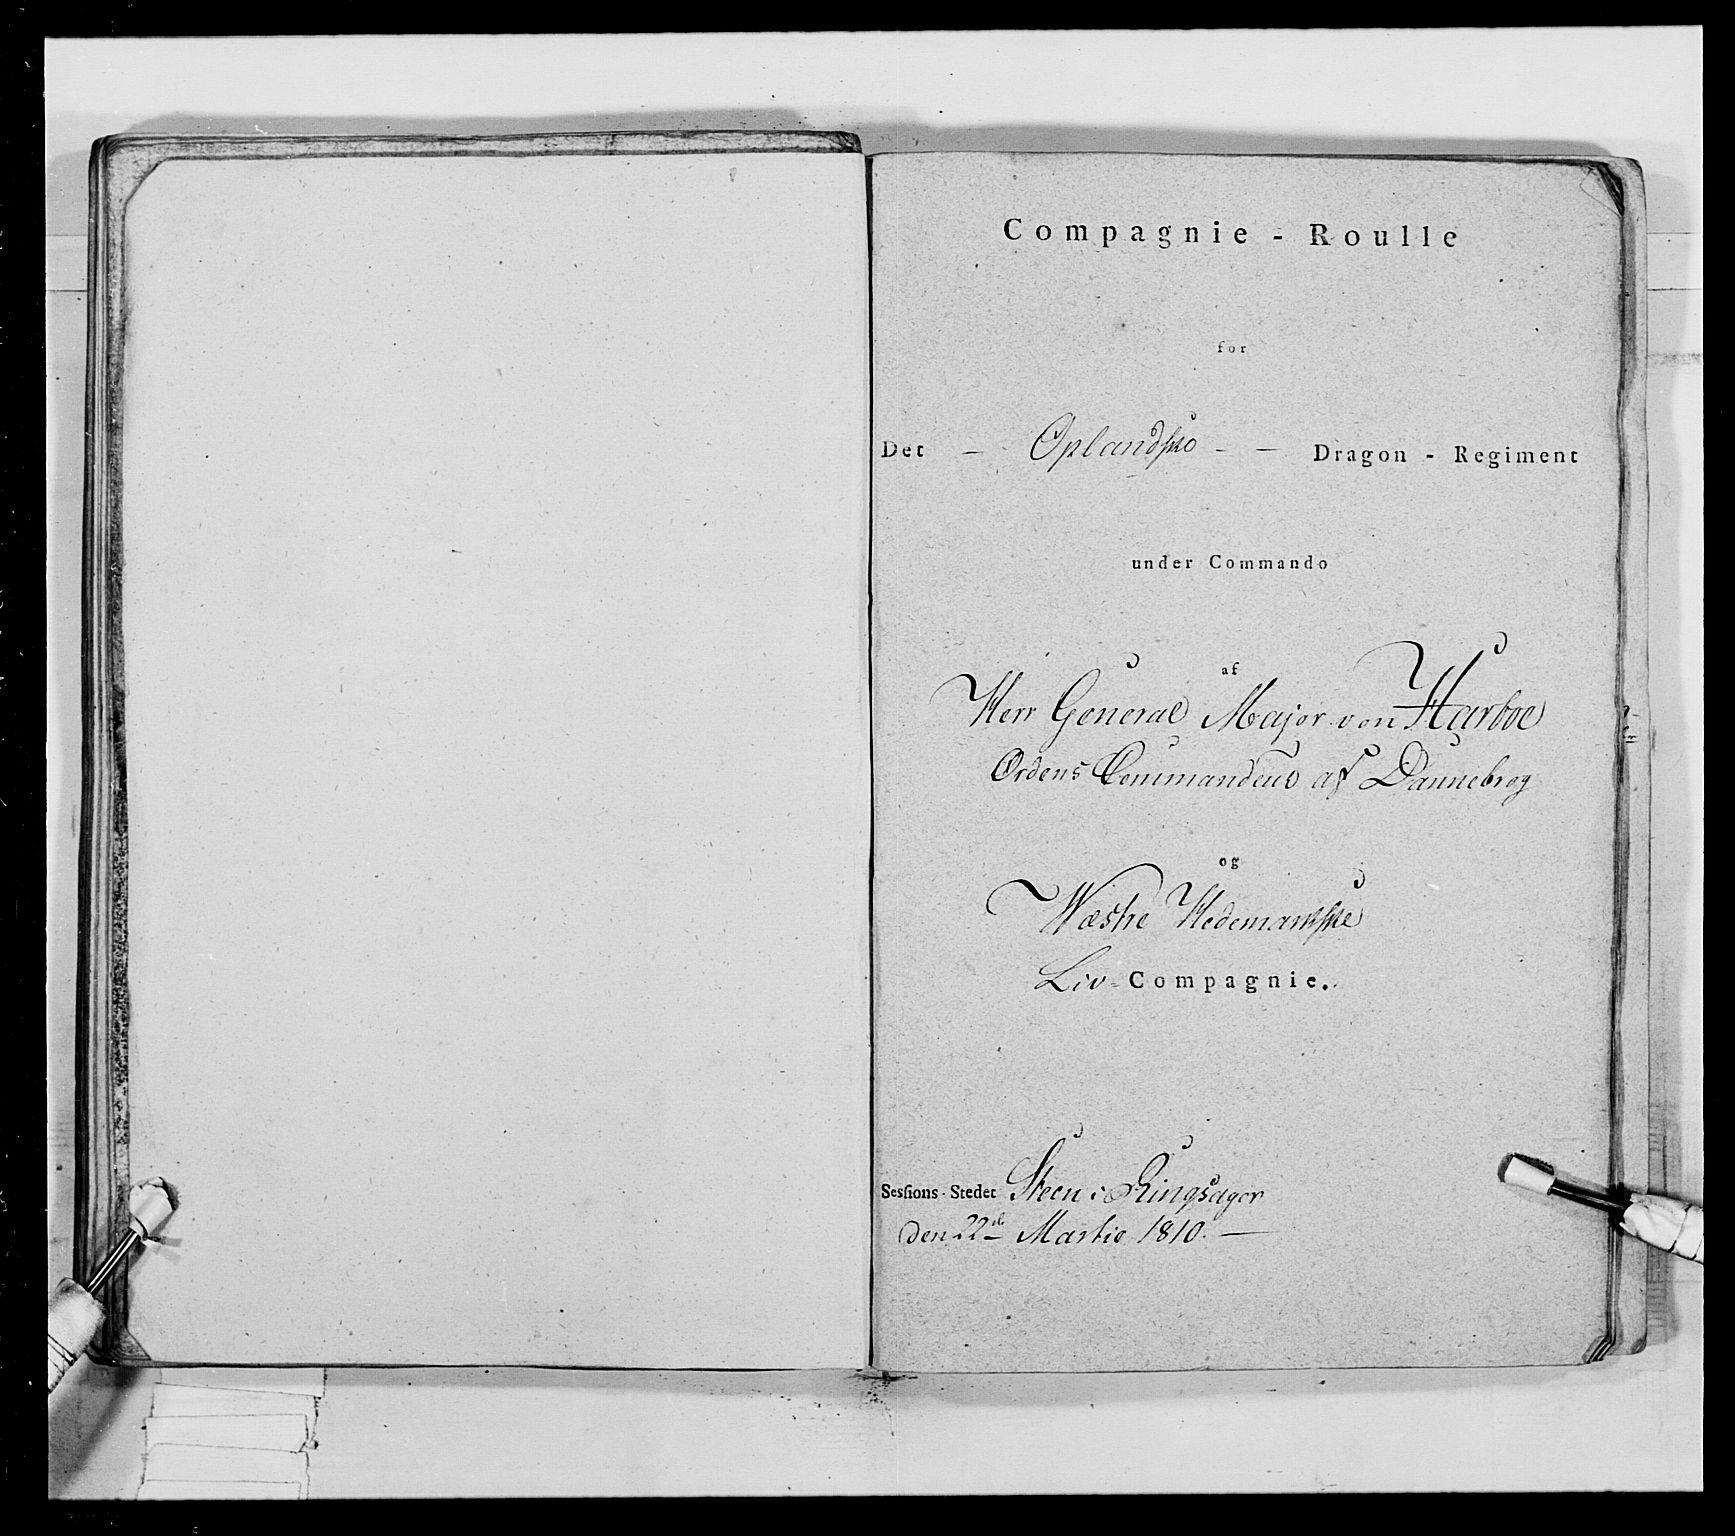 Compagnie - Roulle
for
Det - Oplandske - - Dragon - Regiment
under Commando
af
Herr General Major von Harboe
Ordens Commandeur af Dannebrog
og
Wæstre Hedemarkske
Liv-Compagnie.
Sessions-Stedet Steen i Ringsager
den 22d Martie 1810. -